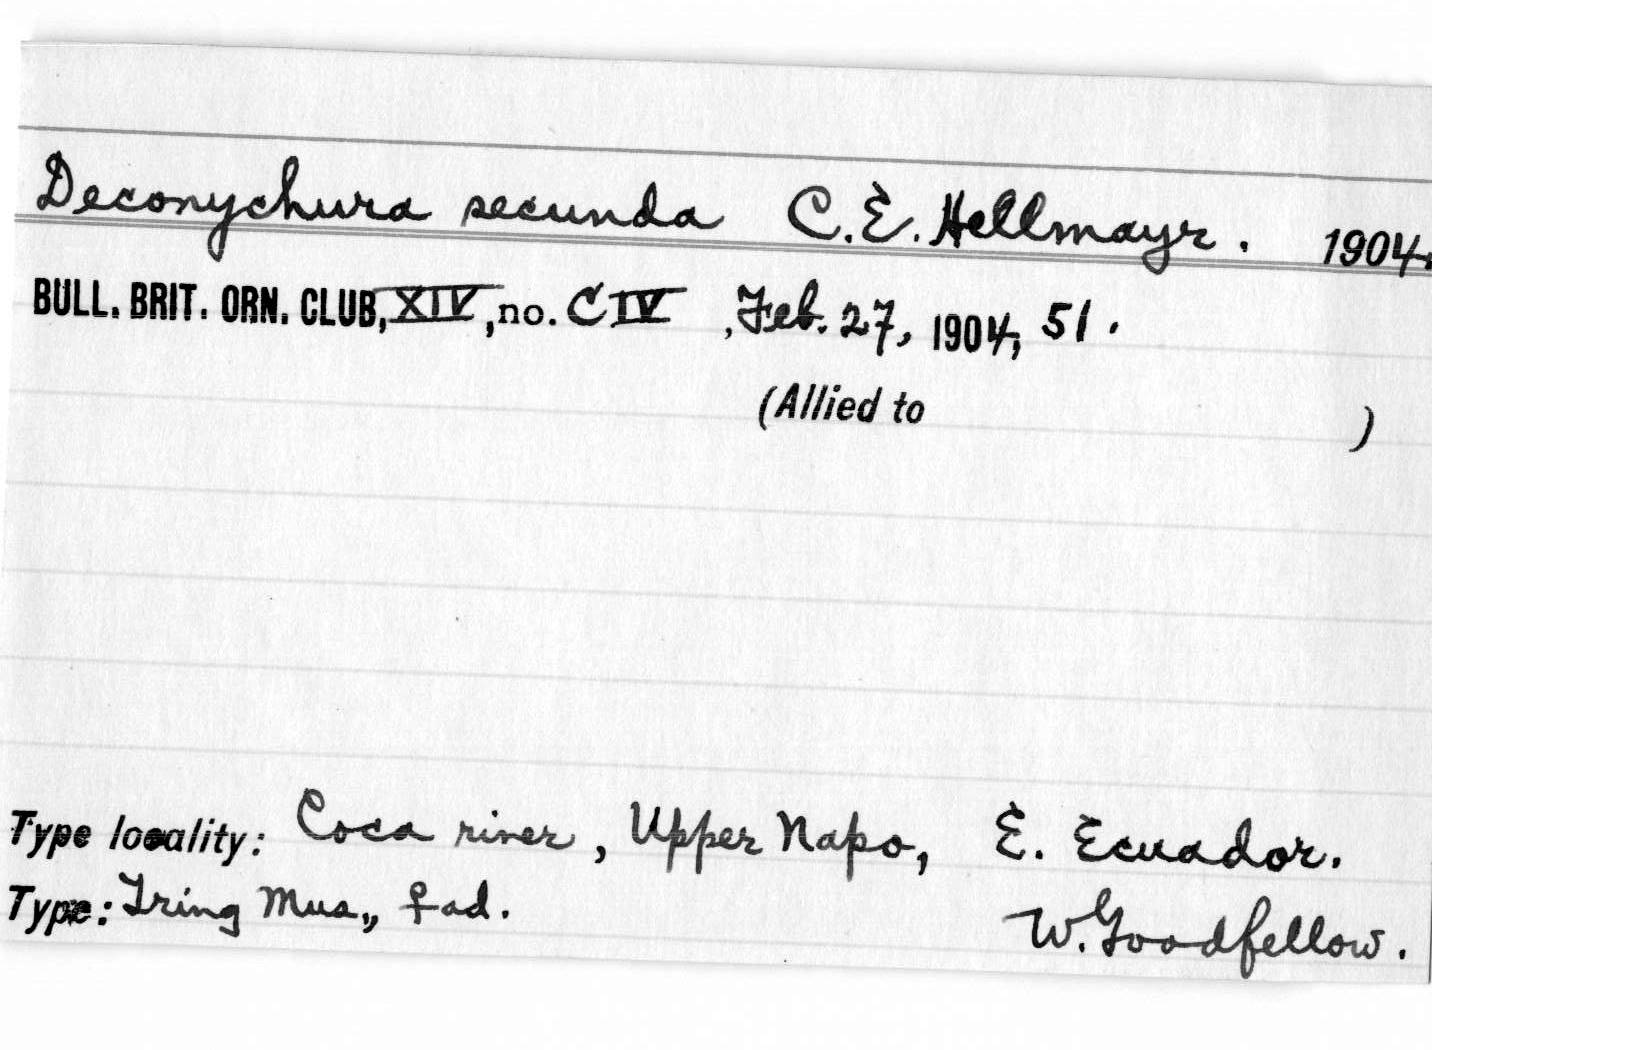 Deconychura secunda C.E. Hellmayr. 1904.
BULL. BRIT. ORN. CLUB, XIV, no. CIV, Feb. 27, 1904, 51.
(Allied to )
Type locality: Coca river, Upper Napo, E. Ecuador.
Type: Tring Mus., ♀ ad. W. Goodfellow.